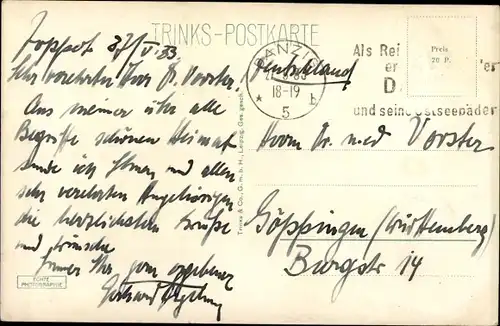 TRINKS-POSTKARTE
Zoppot 27/V. 33
Sehr verehrter Herr Dr. Vorster.
Aus meiner über alle
Begriffe schönen Heimat
sende ich Ihnen und allen
sehr verehrten Angehörigen
die herzlichsten Grüße
und Wünsche
Immer Ihr ganz ergebener
Gerhard
ECHTE
PHOTOGRAPHIE
Trinks & Co., G. m. b. H., Leipzig. Ges. gesch.
DANZIG
18-19
* 5 b
Als Rei
er
D
und seine Ostseebäder
Preis
20 P.
Deutschland
Herrn Dr. med Vorster
Göppingen (Württemberg)
Bergstr 14